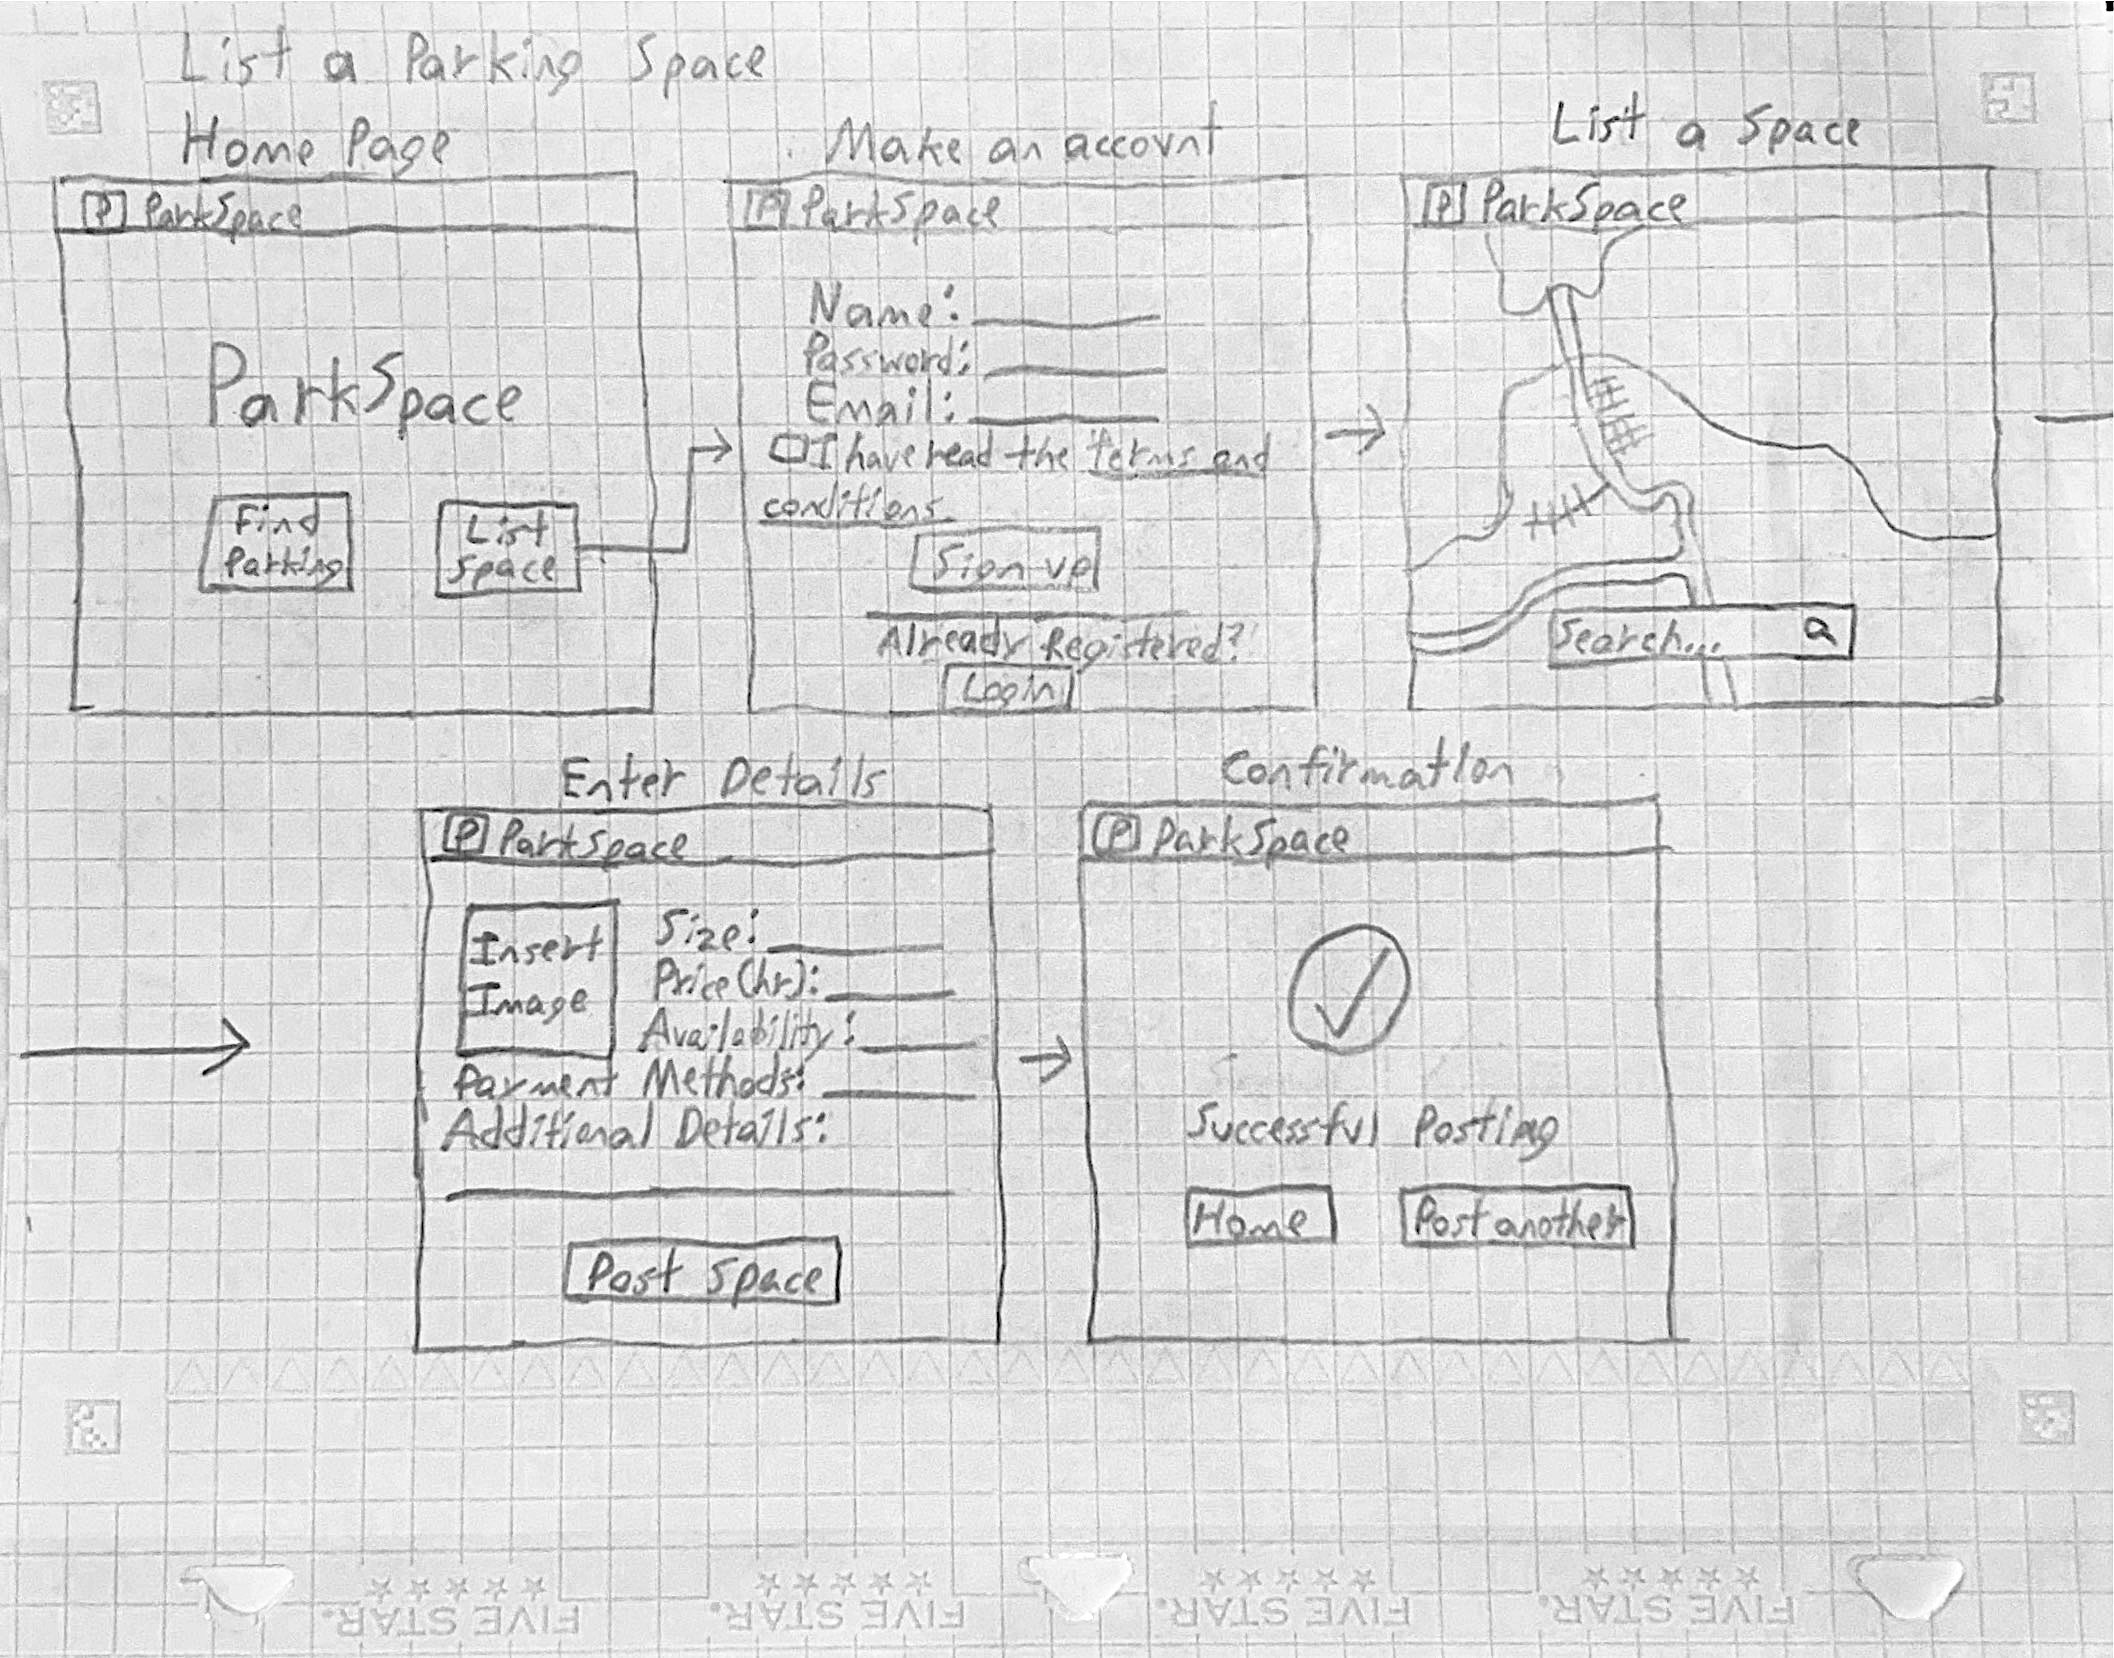 List a Parking Space
Home Page
P ParkSpace
ParkSpace
Find
Parking
List
Space
Make an account
P ParkSpace
Name:
Password:
Email:
I have read the terms and
conditions
Sign up
Already Registered?
Login
List a Space
P ParkSpace
Search...
Enter Details
P ParkSpace
Insert
Image
Size:
Price(hr):
Availability:
Payment Methods:
Additional Details:
Post Space
Confirmation
P ParkSpace
Successful Posting
Home
Post another
FIVE STAR.
FIVE STAR.
FIVE STAR.
FIVE STAR.